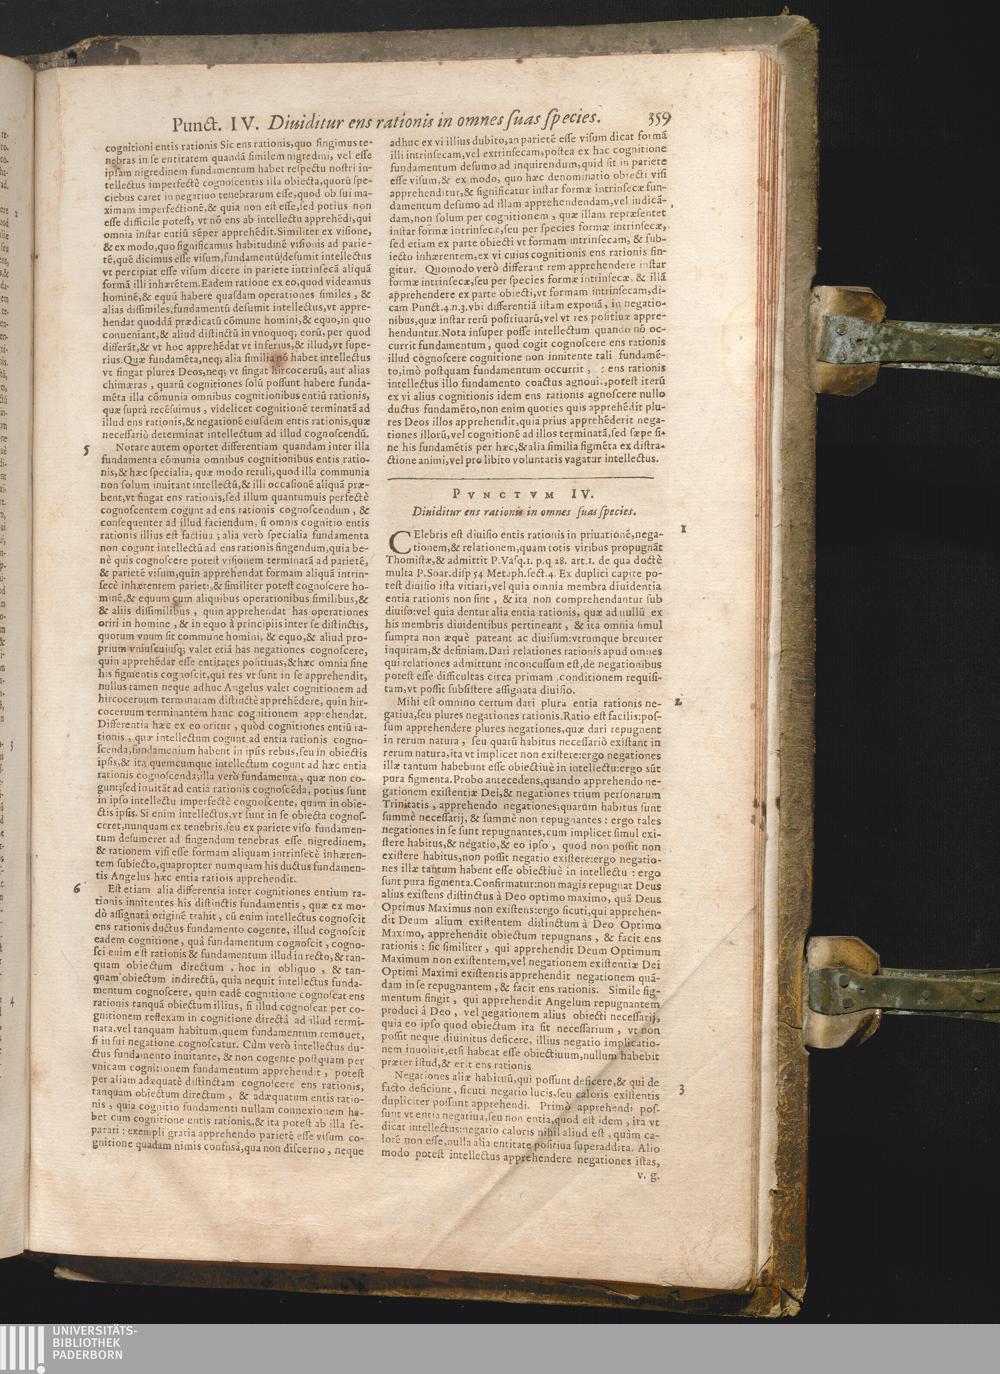 Punct. IV. Diuiditur ens rationis in omnes suas species. 359
cognitioni entis rationis Sic ens rationis, quo fingimus te-
nebras in se entitatem quandā similem nigredini, vel esse
ipsam nigredinem fundamentum habet respectu nostri in-
tellectus imperfectè cognoscentis illa obiecta, quorū spe-
ciebus caret in negatiuo tenebrarum esse, quod ob sui ma-
ximam imperfectionē, & quia non est esse, sed potius non
esse difficile potest, vt nō ens ab intellectu apprehēdi, qui
omnia instar entiū sēper apprehēdit. Similiter ex visione,
& ex modo, quo significamus habitudinē visionis ad parie-
tē, quē dicimus esse visum, fundamentū desumit intellectus
vt percipiat esse visum dicere in pariete intrinsecā aliquā
formā illi inhærētem. Eadem ratione ex eo, quod videamus
hominē, & equū habere quasdam operationes similes, &
alias dissimiles, fundamentū desumit intellectus, vt appre-
hendat quoddā prædicatū cōmune homini, & equo, in quo
conueniant, & aliud distinctū in vnoquoq; eorū, per quod
differāt, & vt hoc apprehēdat vt inferius, & illud, vt supe-
rius. Quæ fundamēta, neq; alia similia nō habet intellectus
vt fingat plures Deos, neq; vt fingat hircoceruū, aut alias
chimæras, quarū cognitiones solū possunt habere funda-
mēta illa cōmunia omnibus cognitionibus entiū rationis,
quæ suprà recēsuimus, videlicet cognitionē terminatā ad
illud ens rationis, & negationē eiusdem entis rationis, quæ
necessariò determinat intellectum ad illud cognoscendū.
5 Notare autem oportet differentiam quandam inter illa
fundamenta cōmunia omnibus cognitionibus entis ratio-
nis, & hæc specialia, quæ modo retuli, quod illa communia
non solum inuitant intellectū, & illi occasionē aliquā præ-
bent, vt fingat ens rationis, sed illum quantumuis perfectè
cognoscentem cogunt ad ens rationis cognoscendum, &
consequenter ad illud faciendum, si omnis cognitio entis
rationis illius est factiua; alia verò specialia fundamenta
non cogunt intellectū ad ens rationis fingendum, quia be-
nè quis cognoscere potest visionem terminatā ad parietē,
& parietē visum, quin apprehendat formam aliquā intrin-
secè inhærentem parieti, & similiter potest cognoscere ho-
minē, & equum cum aliquibus operationibus similibus, &
& aliis dissimilibus, quin apprehendat has operationes
oriri in homine, & in equo à principiis inter se distinctis,
quorum vnum sit commune homini, & equo, & aliud pro-
prium vniuscuiusq; valet etiā has negationes cognoscere,
quin apprehēdat esse entitates positiuas, & hæc omnia sine
his figmentis cognoscit, qui res vt sunt in se apprehendit,
nullus tamen neque adhuc Angelus valet cognitionem ad
hircoceruum terminatam distinctè apprehēdere, quin hir-
coceruum terminantem hanc cognitionem apprehendat.
Differentia hæc ex eo oritur, quòd cognitiones entiū ra-
tionis, quæ intellectum cogunt ad entia rationis cogno-
scenda, fundamentum habent in ipsis rebus, seu in obiectis
ipsis, & ita quemcumque intellectum cogunt ad hæc entia
rationis cognoscenda; illa verò fundamenta, quæ non co-
gunt; sed inuitāt ad entia rationis cognoscēda, potius sunt
in ipso intellectu imperfectè cognoscente, quam in obie-
ctis ipsis. Si enim intellectus, vt sunt in se obiecta cognos-
ceret, nunquam ex tenebris, seu ex pariete viso fundamen-
tum desumeret ad fingendum tenebras esse nigredinem,
& rationem visi esse formam aliquam intrinsecè inhæren-
tem subiecto, quapropter numquam his ductus fundamen-
tis Angelus hæc entia ratiois apprehendit.
6 Est etiam alia differentia inter cognitiones entium ra-
tionis innitentes his distinctis fundamentis, quæ ex mo-
dò assignatā originē trahit, cū enim intellectus cognoscit
ens rationis ductus fundamento cogente, illud cognoscit
eadem cognitione, quā fundamentum cognoscit, cogno-
sci enim est rationis & fundamentum illud in recto, & tan-
quam obiectum directum, hoc in obliquo, & tan-
quam obiectum indirectū, quia nequit intellectus funda-
mentum cognoscere, quin eadē cognitione cognoscat ens
rationis tanquā obiectum illius, si illud cognoscat per co-
gnitionem reflexam in cognitione directā ad illud termi-
nata, vel tanquam habitum, quem fundamentum remouet,
si in sui negatione cognoscatur. Cùm verò intellectus du-
ctus fundamento inuitante, & non cogente postquam per
vnicam cognitionem fundamentum apprehendit, potest
per aliam adæquatè distinctam cognoscere ens rationis,
tanquam obiectum directum, & adæquatum entis ratio-
nis, quia cognitio fundamenti nullam connexionem ha-
bet cum cognitione entis rationis, & ita potest ab illa se-
parari: exempli gratia apprehendo parietē esse visum co-
gnitione quadam nimis confusā, qua non discerno, neque
adhuc ex vi illius dubito, an parietē esse visum dicat formā
illi intrinsecam, vel extrinsecam, postea ex hac cognitione
fundamentum desumo ad inquirendum, quid sit in pariete
esse visum, & ex modo, quo hæc denominatio obiecti visi
apprehenditur, & significatur instar formæ intrinsecæ fun-
damentum desumo ad illam apprehendendam, vel iudicā-
dam, non solum per cognitionem, quæ illam repræsentet
instar formæ intrinsecæ, seu per species formæ intrinsecæ,
sed etiam ex parte obiecti vt formam intrinsecam, & sub-
iecto inhærentem, ex vi cuius cognitionis ens rationis fin-
gitur. Quomodo verò differant rem apprehendere instar
formæ intrinsecæ, seu per species formæ intrinsecæ, & illā
apprehendere ex parte obiecti, vt formam intrinsecam, di-
cam Punct. 4. n. 3. vbi differentiā istam exponā, in negatio-
nibus, quæ instar rerū positiuarū, vel vt res positiuæ appre-
henduntur. Nota insuper posse intellectum quando nō oc-
currit fundamentum, quod cogit cognoscere ens rationis
illud cōgnoscere cognitione non innitente tali fundamē-
to, imò postquam fundamentum occurrit, ens rationis
intellectus illo fundamento coactus agnoui., potest iterū
ex vi alius cognitionis idem ens rationis agnoscere nullo
ductus fundamēto, non enim quoties quis apprehēdit plu-
res Deos illos apprehendit, quia prius apprehēderit nega-
tiones illorū, vel cognitionē ad illos terminatā, sed sæpe si-
ne his fundamētis per hæc, & alia similia figmēta ex distra-
ctione animi, vel pro libito voluntatis vagatur intellectus.
PVNCTVM IV.
Diuiditur ens rationis in omnes suas species.
1 CElebris est diuisio entis rationis in priuationē, nega-
tionem, & relationem, quam totis viribus propugnāt
Thomistæ, & admittit P. Vasq. 1. p. q 28. art. 1. de qua doctè
multa P. Soar. disp 54 Metaph. sect. 4. Ex duplici capite po-
test diuisio ista vitiari, vel quia omnia membra diuidentia
entia rationis non sint, & ita non comprehendantur sub
diuiso: vel quia dentur alia entia rationis, quæ ad nullū ex
his membris diuidentibus pertineant, & ita omnia simul
sumpta non æquè pateant ac diuisum: vtrumque breuiter
inquiram, & definiam. Dari relationes rationis apud omnes
qui relationes admittunt inconcussum est, de negationibus
potest esse difficultas circa primam conditionem requisi-
tam, vt possit subsistere assignata diuisio.
2 Mihi est omnino certum dari plura entia rationis ne-
gatiua, seu plures negationes rationis. Ratio est facilis: pos-
sum apprehendere plures negationes, quæ dari repugnent
in rerum natura, seu quarū habitus necessariò existant in
rerum natura, ita vt implicet non existere: ergo negationes
illæ tantum habebunt esse obiectiuè in intellectu: ergo sūt
pura figmenta. Probo antecedens, quando apprehendo ne-
gationem existentiæ Dei, & negationes trium personarum
Trinitatis, apprehendo negationes; quarum habitus sunt
summè necessarij, & summè non repugnantes: ergo tales
negationes in se sunt repugnantes, cum implicet simul exi-
stere habitus, & negatio, & eo ipso, quod non possit non
existere habitus, non possit negatio existere: ergo negatio-
nes illæ tantum habent esse obiectiuè in intellectu: ergo
sunt pura figmenta. Confirmatur: non magis repugnat Deus
alius existens distinctus à Deo optimo maximo, quā Deus
Optimus Maximus non existens: ergo sicuti, qui apprehen-
dit Deum alium existentem distinctum à Deo Optimo
Maximo, apprehendit obiectum repugnans, & facit ens
rationis: sic similiter, qui apprehendit Deum Optimum
Maximum non existentem, vel negationem existentiæ Dei
Optimi Maximi existentis apprehendit negationem quā-
dam in se repugnantem, & facit ens rationis. Simile fig-
mentum fingit, qui apprehendit Angelum repugnantem
produci à Deo, vel negationem alius obiecti necessarij,
quia eo ipso quod obiectum ita sit necessarium, vt non
possit neque diuinitus deficere, illius negatio implicatio-
nem inuoluit, etsi habeat esse obiectiuum, nullum habebit
præter istud, & erit ens rationis.
3 Negationes aliæ habituū, qui possunt deficere, & qui de
facto deficiunt, sicuti negatio lucis, seu caloris existentis
dupliciter possunt apprehendi. Primò apprehendi pos-
sunt vt entia negatiua, seu non entia, quod est idem, ita vt
dicat intellectus: negatio caloris nihil aliud est, quàm ca-
lorē non esse, nulla alia entitate positiua superaddita. Alio
modo potest intellectus apprehendere negationes istas,
v. g.
UNIVERSITÄTS-
BIBLIOTHEK
PADERBORN